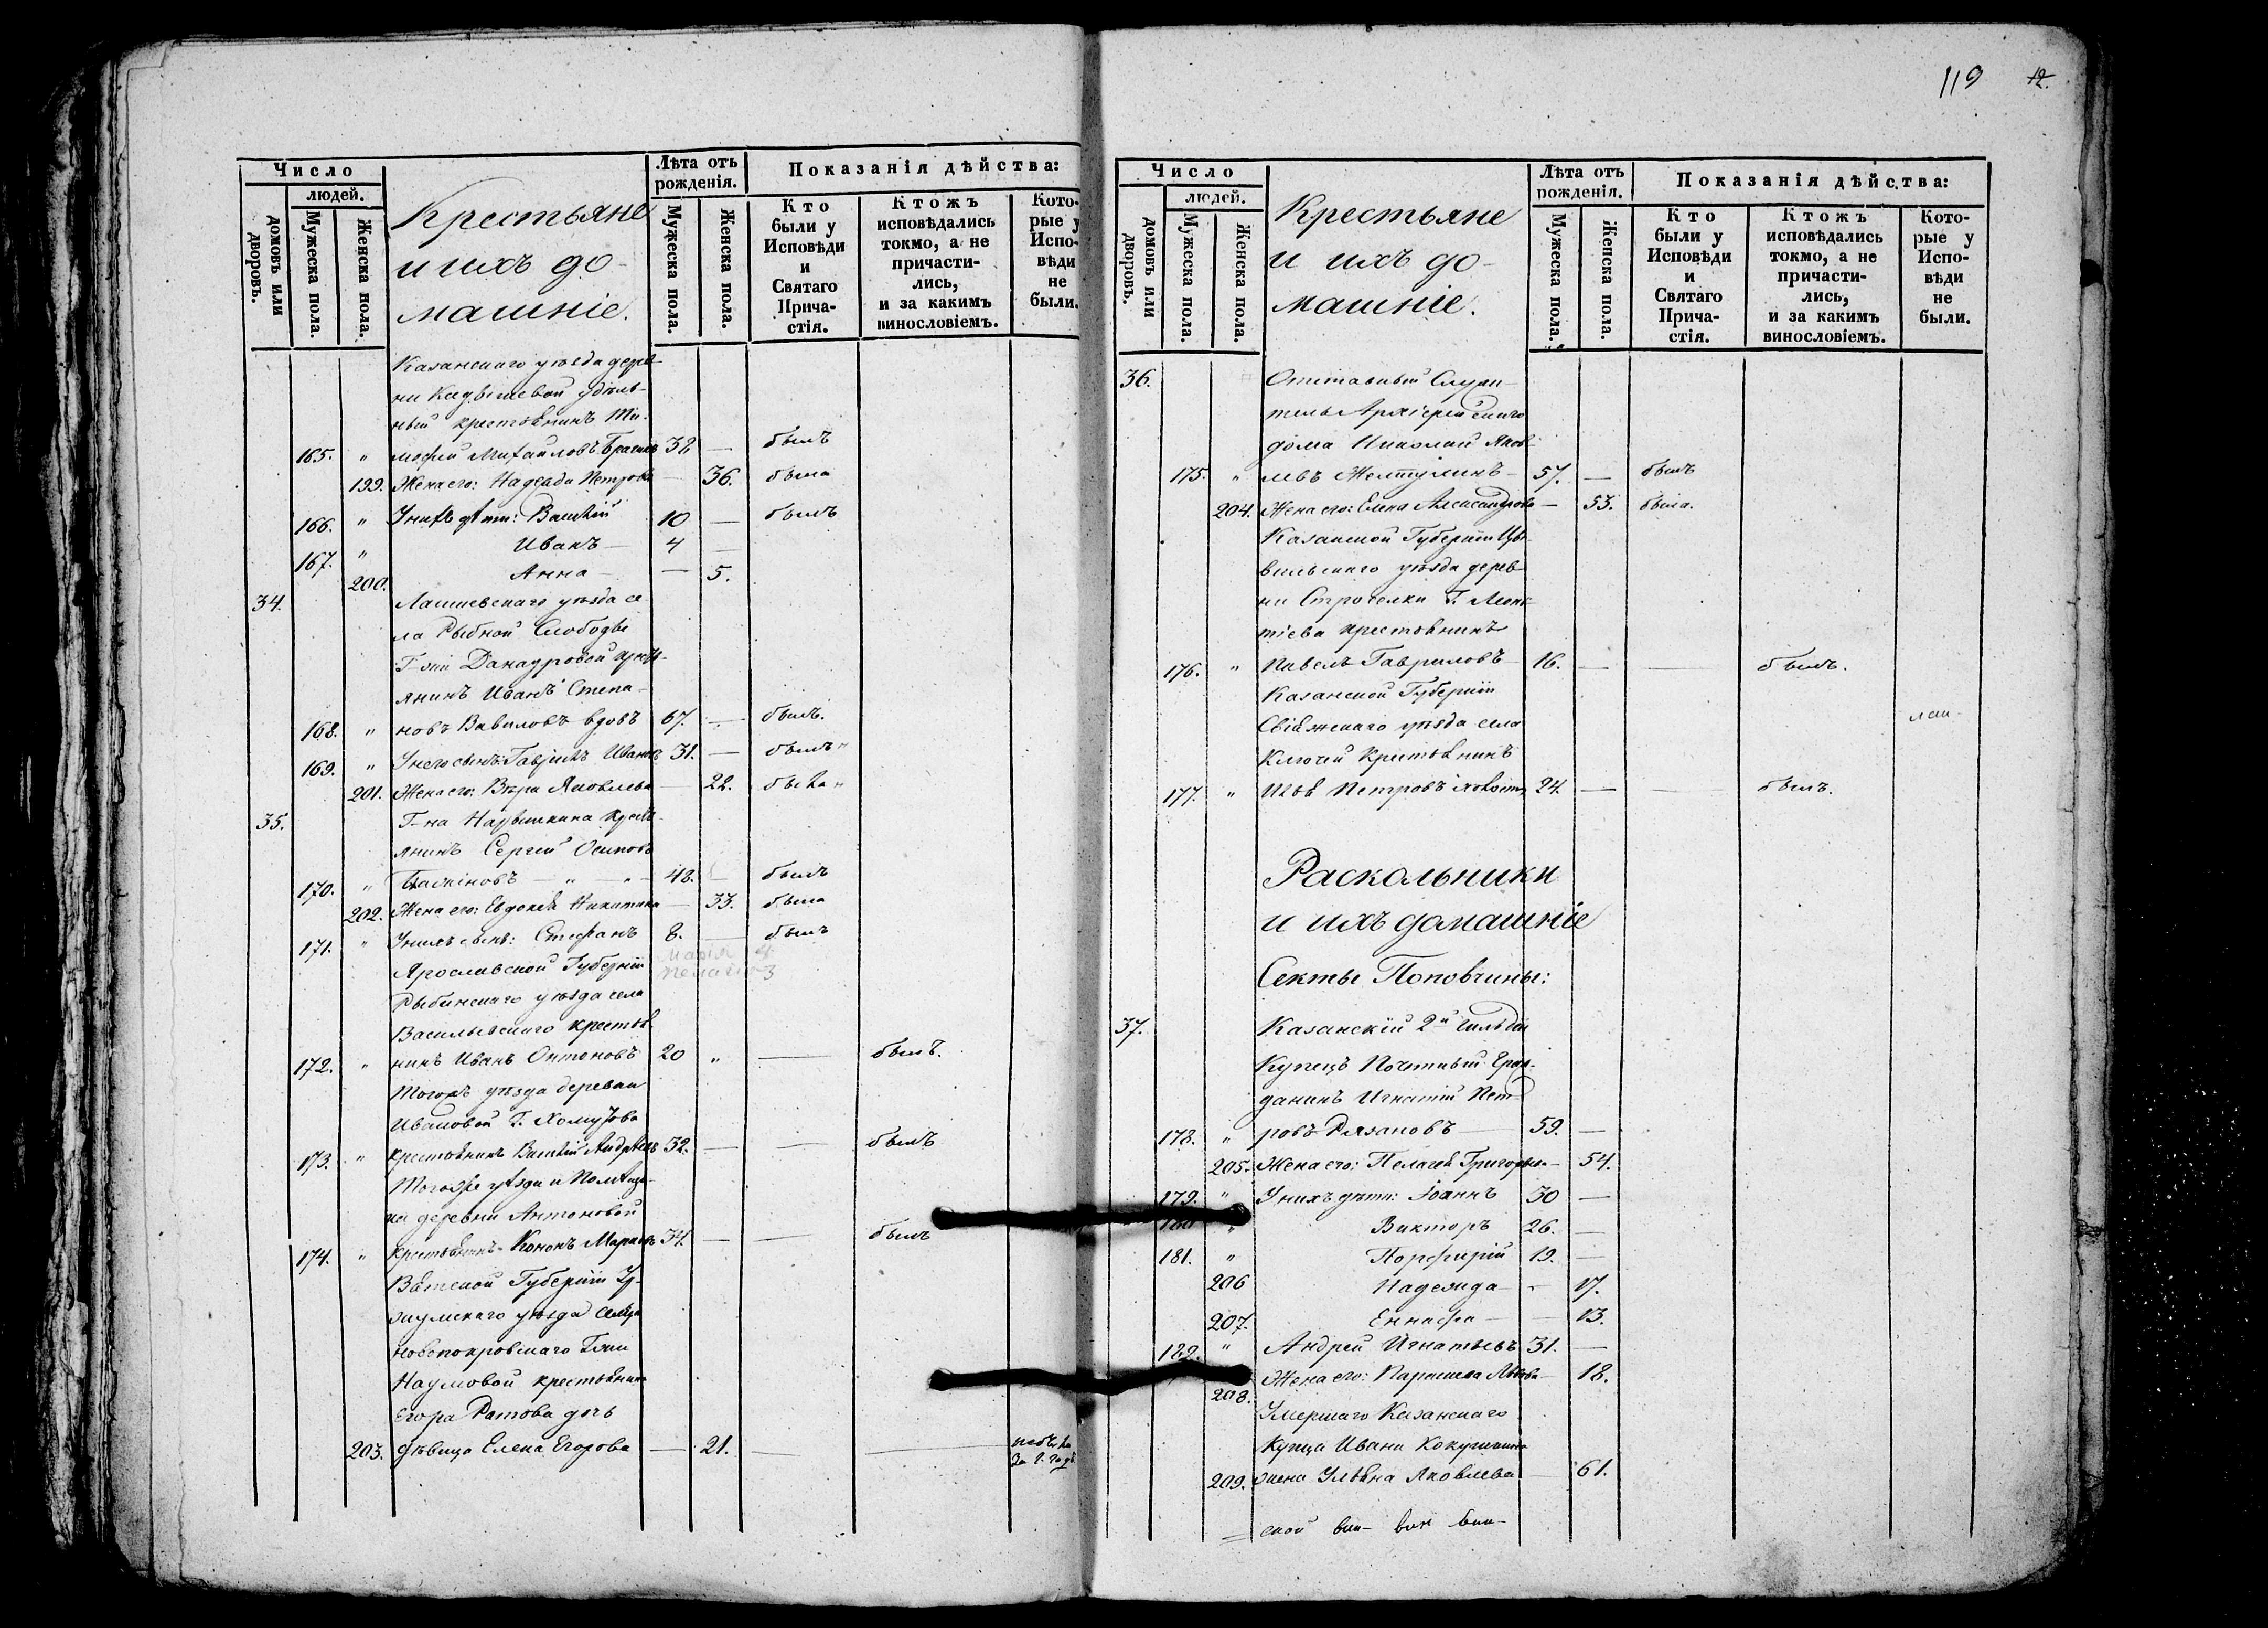 Число
людей.
домовъ или дворовъ.
Мужеска пола.
Женска пола.
Крестьяне
и ихъ до-
машніе.
Лѣта отъ рожденія.
Мужеска пола.
Женска пола.
Показанія дѣйства:
Кто были у Исповѣди и Святаго Прича-стія.
Ктожъ исповѣдались токмо, а не причасти-лись, и за какимъ винословіемъ.
Кото-рые у Испо-вѣди не были.
Казанскаго уѣзда дерев-
ни Кадышевой удѣль-
ный крестьянинъ Ти-
165. " мофей Михайловъ 38 — былъ
199. Жена его: Надежда Петрова — 36. была
166. " У нихъ дѣти: Василій 10 — былъ
167. " Иванъ — 4 —
200. Анна — — 5.
34. Лаишевскаго уѣзда се-
ла Рыбной Слободы
Г-жи кресть-
янинъ Иванъ Степа-
168. " новъ Вавиловъ вдовъ 67. — былъ.
169. " У него сынъ: Гаврилъ Ивановъ 31. — былъ "
201. Жена его: Вѣра Яковлева — 22. была "
35. Г-на Нарышкина кресть-
янинъ Сергей Осиповъ
170. " — " — " — 48. — былъ
202. Жена его: Евдокія Никитина — 33. была
171. " У нихъ сынъ: Стефанъ 8. — былъ
Марія 4
Пелагія 3
Ярославской Губерніи
Рыбинскаго уѣзда села
Васильевскаго крестья-
172. " нинъ Иванъ Онтоновъ 20 " — былъ.
Тогожъ уѣзда деревни
Ивановой Г. Хомутова
173. " крестьянинъ Василій Андреевъ 32. — — былъ
Тогоже уѣзда и Помѣщи-
ка деревни Антоновой
174. " крестьянинъ Кононъ Марковъ 34. — — былъ
Вятской Губерніи Ур-
жумскаго уѣзда сельца
Новопокровскаго Г-жи
Наумовой крестьянина
Егора Ратова дочь
203. дѣвица Елена Егорова — 21. — — небыла
за 2. года
119 12.
Число
людей.
домовъ или дворовъ.
Мужеска пола.
Женска пола.
Крестьяне
и ихъ до-
машніе.
Лѣта отъ рожденія.
Мужеска пола.
Женска пола.
Показанія дѣйства:
Кто были у Исповѣди и Святаго Прича-стія.
Ктожъ исповѣдались токмо, а не причасти-лись, и за какимъ винословіемъ.
Кото-рые у Испо-вѣди не были.
36. Отставный Служи-
тель Архіерейскаго
дома Николай Яков-
175. " левъ Желтухинъ — 57. — былъ
204. Жена его: Елена Александрова — 53. была.
Казанской Губерніи Ци-
вильскаго уѣзда дерев-
ни Строгелки Г. Леон-
тіева крестьянинъ
176. " Павелъ Гавриловъ — 16. — — былъ.
Казанской Губерніи
Свіяжскаго уѣзда села
Ключей Крестьянинъ
177. " Петровъ холостъ 24. — — былъ.
Раскольники
и ихъ домашніе
Секты Поповчины:
37. Казанскій 2й Гильдіи
Купецъ Почетный Граж-
данинъ Игнатій Пет-
178. " ровъ Рязановъ — 59. —
205. Жена его: Пелагея Григорьева — 54.
179. " У нихъ дѣти: Іоаннъ 30 —
180 " Викторъ 26. —
181. " Порфирій 19. —
206 Надежда — - 17.
207. Еннафа — — 13.
182. " Андрей Игнатьевъ 31. —
208. Жена его: Параскева Львова — 18.
Умершаго Казанскаго
Купца Ивана Кокушкина
209. жена Ульяна Яковлева — 61.